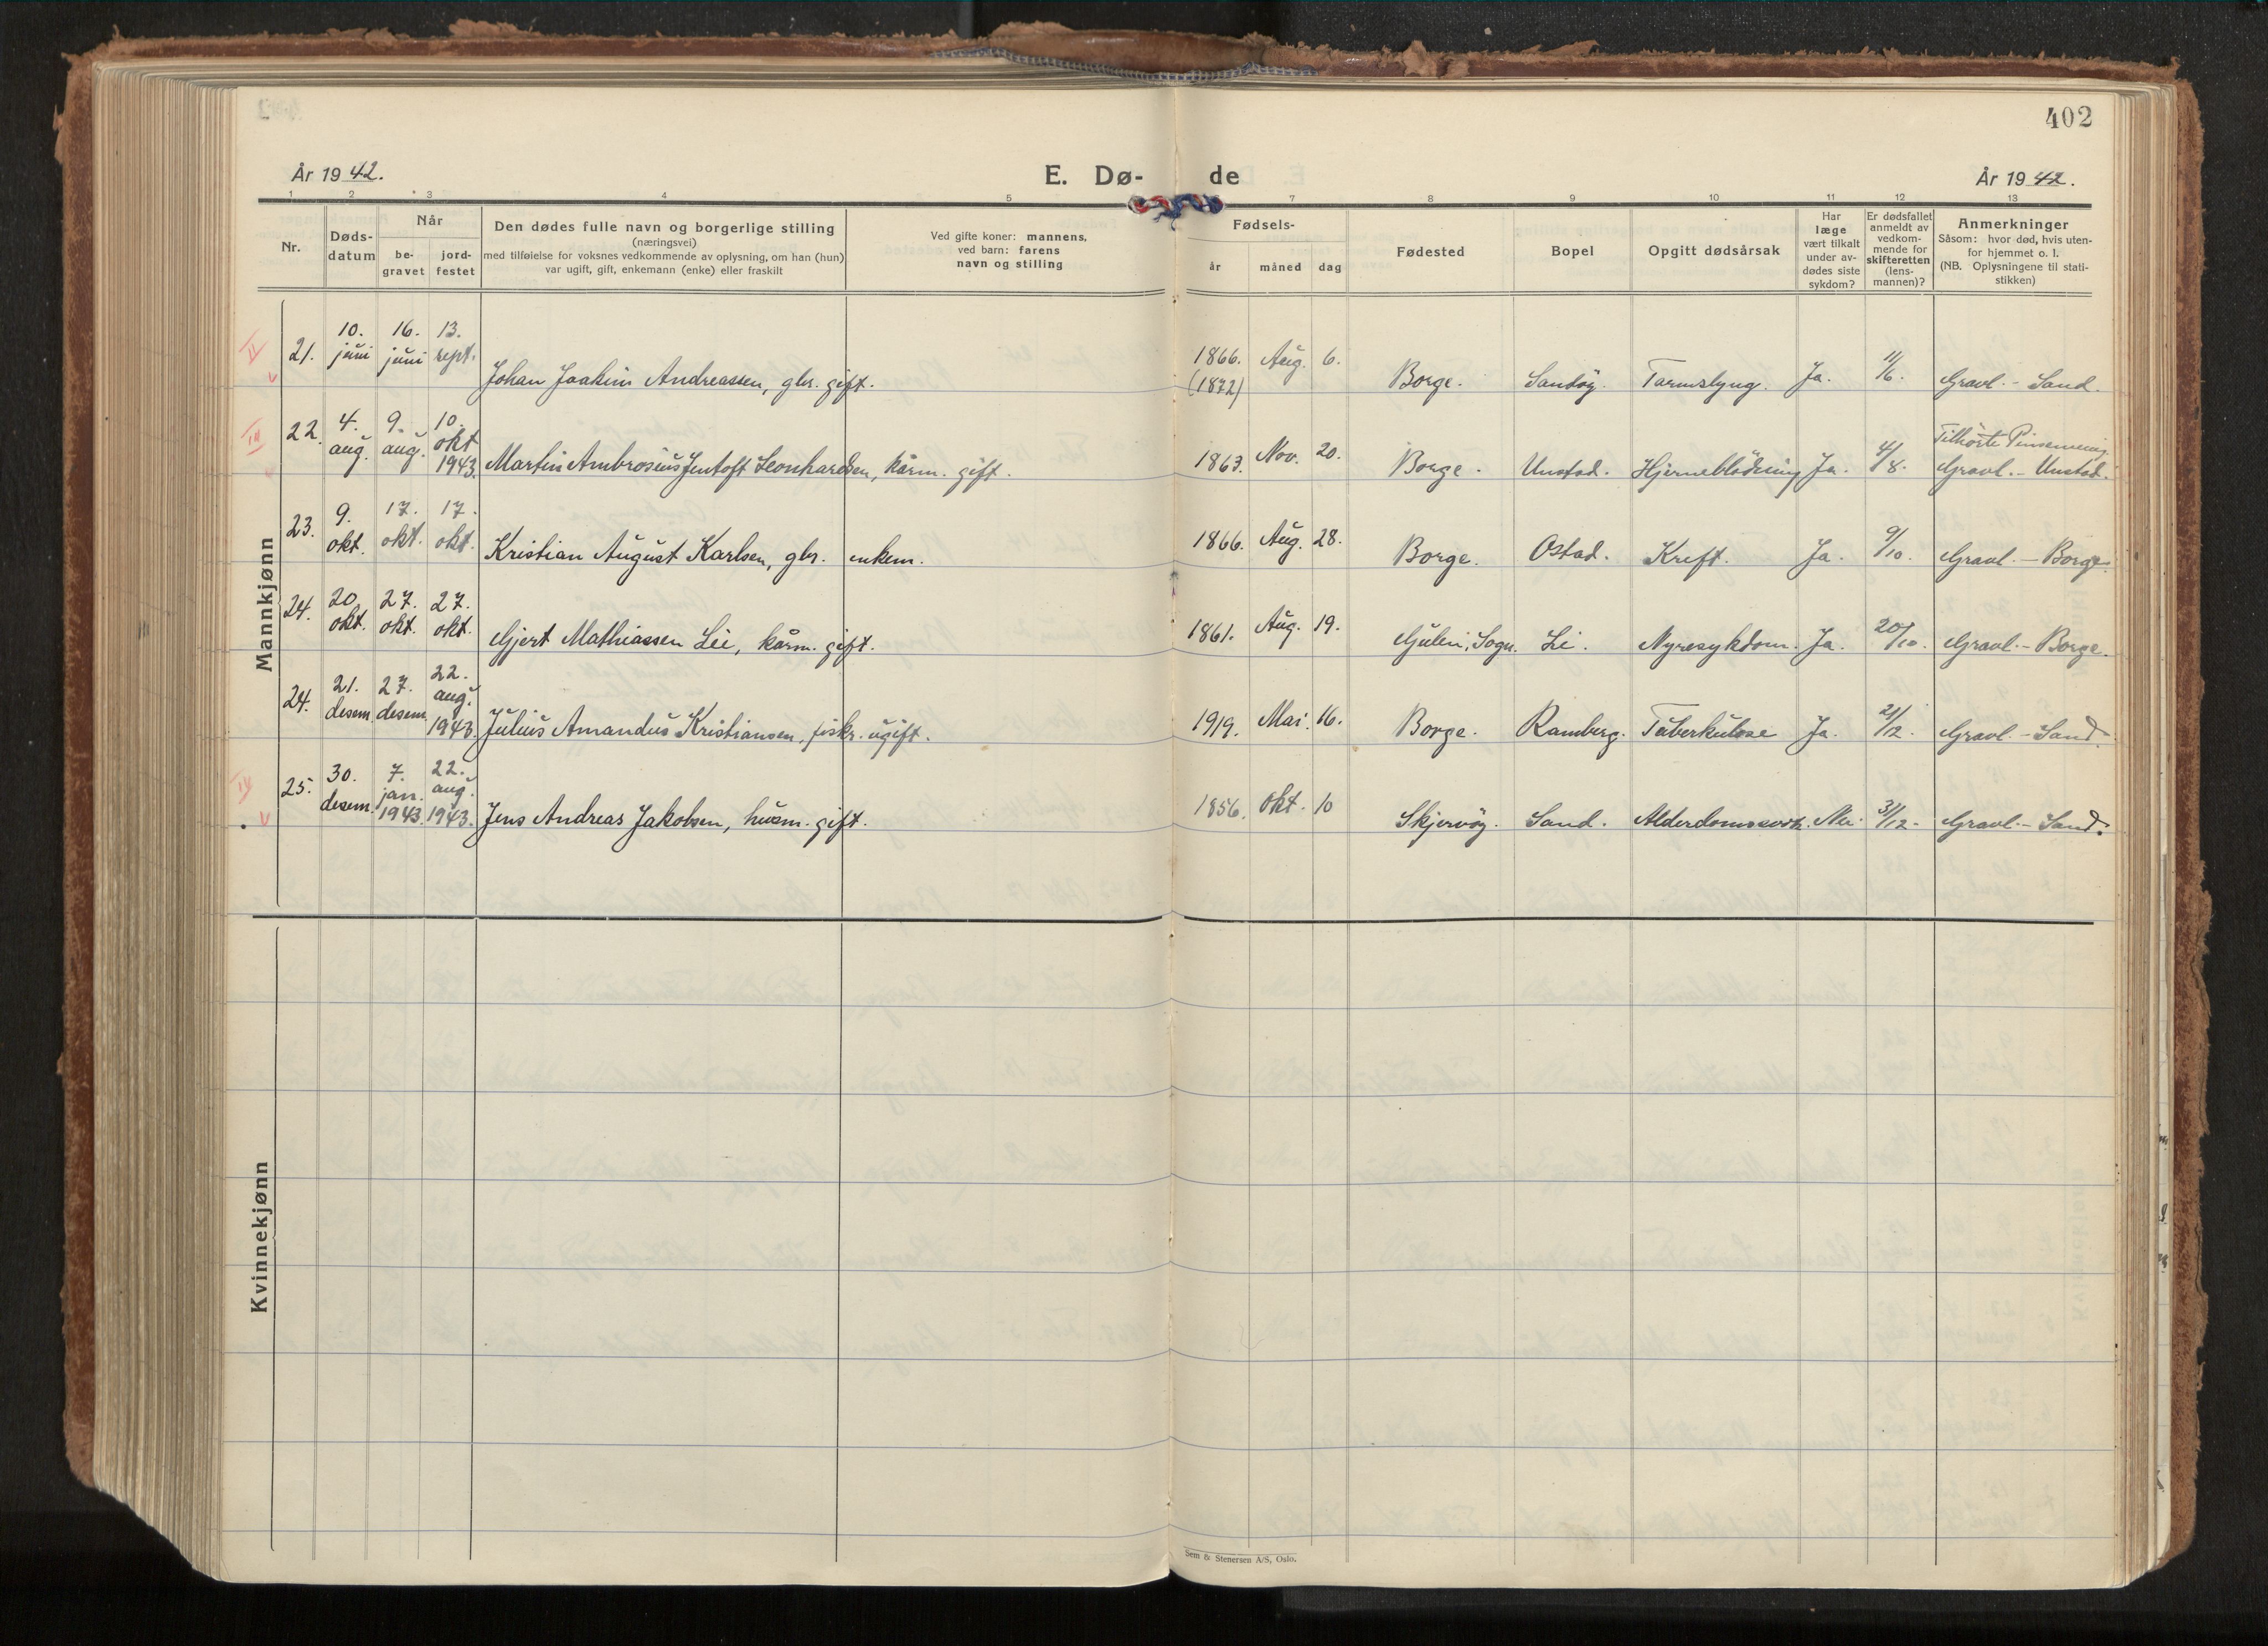 402
År 1942.
E. Dø- de
År 1942.
1 2 3 4 5 7 8 9 10 11 12 13
Nr.
Døds-
datum
Når
be-
gravet
jord-
festet
Den dødes fulle navn og borgerlige stilling
(næringsvei)
med tilføielse for voksnes vedkommende av oplysning, om han (hun)
var ugift, gift, enkemann (enke) eller fraskilt
Ved gifte koner: mannens,
ved barn: farens
navn og stilling
Fødsels-
år måned dag
Fødested
Bopel
Opgitt dødsårsak
Har
læge
vært tilkalt
under av-
dødes siste
sykdom?
Er dødsfallet
anmeldt av
vedkom-
mende for
skifteretten
(lens-
mannen)?
Anmerkninger
Såsom: hvor død, hvis uten-
for hjemmet o. l.
(NB. Oplysningene til stati-
stikken)
Mannkjønn
21. 10. juni 16. juni 13. sept. Johan Joakim Andreassen, gbr. gift. 1866. (1872) Aug. 6. Borge. Sandøy. Tarmslyng. Ja. 11/6. Gravl. - Sand.
22. 4. aug. 9. aug. 10. okt 1943. Martin Ambrosius Jentoft Leonhardsen, kårm. gift. 1863. Nov. 20. Borge. Unstad. Hjerneblødning Ja. 4/8. Tilhørte Pinsemenig. Gravl. - Unstad.
23. 9. okt. 17. okt. 17. okt. Kristian August Karlsen, gbr. enkem. 1866. Aug. 28. Borge. Ostad. Kreft. Ja. 9/10. Gravl. - Borge.
24. 20. okt. 27. okt. 27. okt. Gjert Mathiassen Lie, kårm. gift. 1861. Aug. 19. Gulen, Sogn. Li. Nyresykdom. Ja. 20/10. Gravl. - Borge.
24. 21. desem. 27. desem. 22. aug. 1943. Julius Amandus Kristiansen, fiskr. ugift. 1919. Mai. 16. Borge. Ramberg. Tuberkulose Ja. 21/12. Gravl. - Sand.
25. 30. desem. 7. jan. 1943. 22. aug. 1943. Jens Andreas Jakobsen, husm. gift. 1856. Okt. 10 Skjervøy. Sand. Alderdomssvekk. Nei. 31/12. Gravl. - Sand.
Kvinnekjønn
Sem & Stenersen A/S, Oslo.